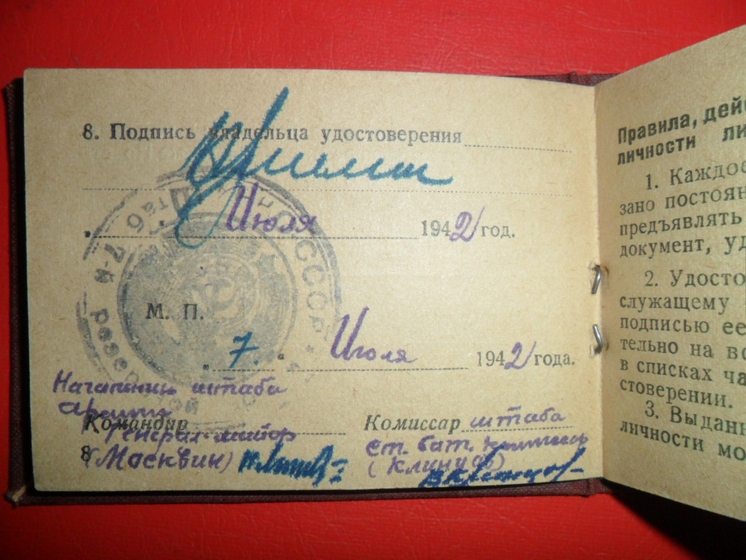 8. Подпись владельца удостоверения
Июля 1942 год.
М. П.
"7." Июля 1942 года.
Начальник штаба
Армии
Командир
Генерал-майор
(Москвин)
Комиссар штаба
ст. бат. комиссар
8
Правила, дей
личности ли
1. Каждое
зано постоян
предъявлять
документ, уд
2. Удосто
служащему
подписью ее
тельно на во
в списках ча
стоверении.
3. Выдан
личности мо